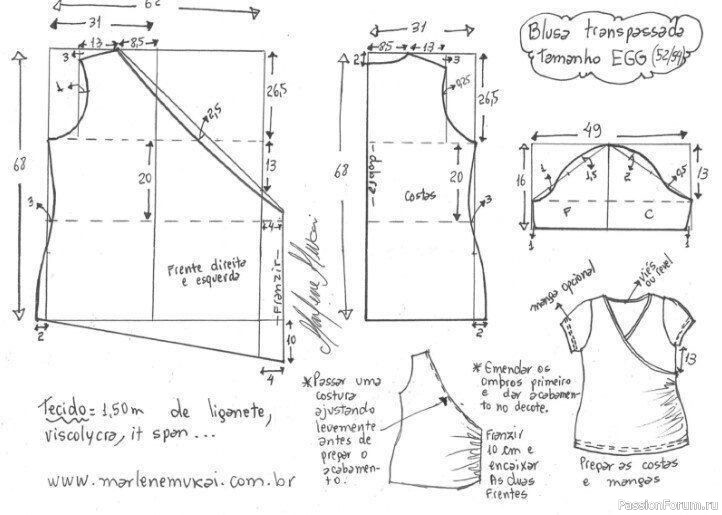 Blusa transpassada
tamanho EGG (52/54)
62
31
13
8,5
3
1
2,5
26,5
13
68
20
3
4
Frente direita
e esquerda
Franzir
2
10
4
31
8,5
13
2
3
0,25
26,5
68
20
dobra
costas
3
2
49
16
13
1
1,5
2
0,5
F
C
1
1
Marlene Mukai
manga opcional
viés
ou revel
13
Tecido = 1,50m de liganete,
viscolycra, it span ...
www.marlenemukai.com.br
* Passar uma
costura
ajustando
levemente
antes de
prepar o
acabamen-
to.
* Emendar os
ombros primeiro
e dar acabamen-
to no decote.
Franzir
10 cm e
encaixar
As duas
frentes
Prepar as costas
e mangas
PassionForum.ru